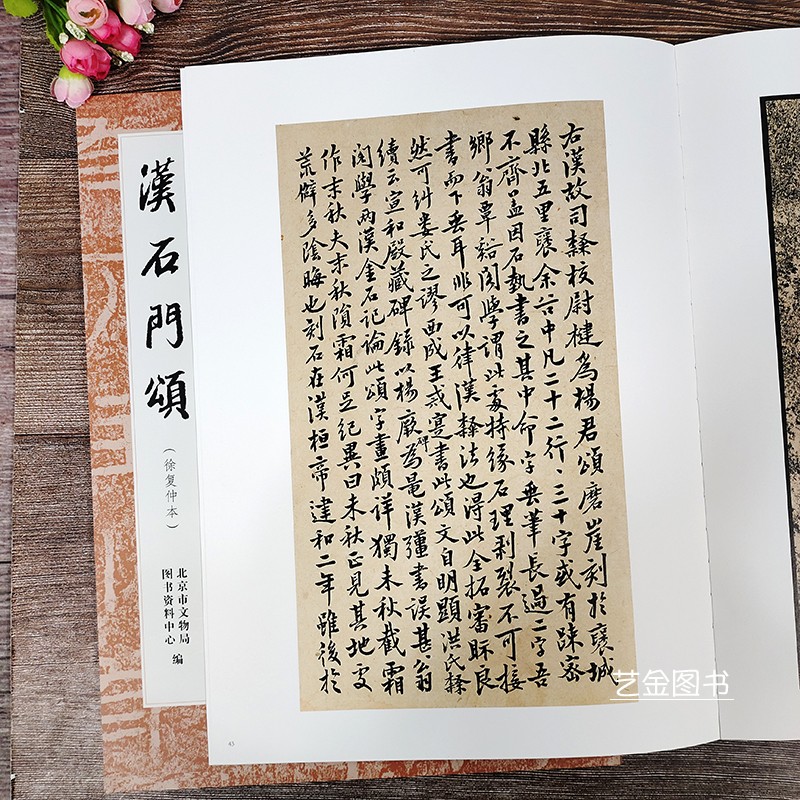 漢石門頌
(徐复仲本)
北京市文物局
图书资料中心 编
右漢故司隸校尉楗為楊君頌磨崖刻於褒城
縣北五里褒余谷中凡二十二行、三十字或有踈密
不齊蓋因石埶書之其中命字垂筆長過二字吾
鄉翁覃谿閣學謂此處特緣石理剥裂不可接
書而下垂耳非可以律漢隸法也淂此全拓審眎良
然可糾婁氏之謬西成王弍寔書此頌文自明顯洪氏隸
續云宣和殿藏碑錄以楊厥碑為黽漢彊書誤甚翁
閣學兩漢金石記論此頌字畫頗詳獨未秋截霜
作末秋夫末秋隕霜何足紀異曰未秋正見其地處
荒僻多陰晦也刻石在漢桓帝建和二年雖後於
63
艺金图书